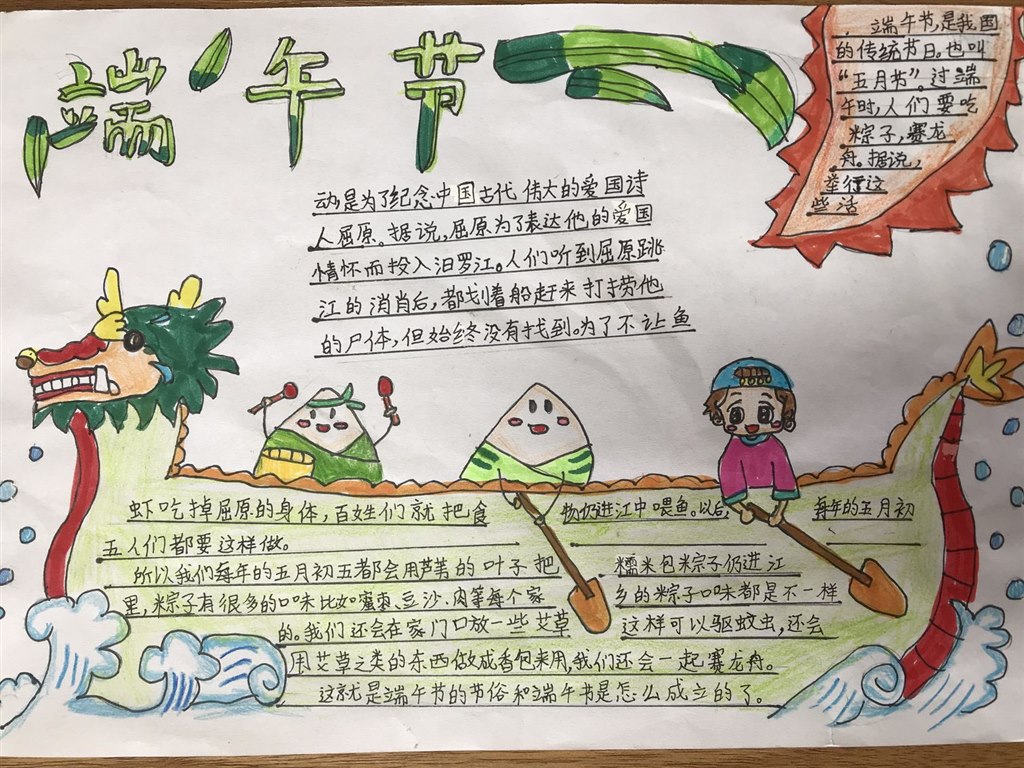 端午节
端午节,是我国
的传统节日。也叫
“五月节”。过端
午时,人们要吃
粽子,赛龙
舟。据说,
举行这
些活
动是为了纪念中国古代伟大的爱国诗
人屈原。据说,屈原为了表达他的爱国
情怀而投入汨罗江。人们听到屈原跳
江的消肖后,都划着船赶来打捞他
的尸体,但始终没有找到。为了不让鱼
虾吃掉屈原的身体,百姓们就把食 物扔进江中喂鱼。以后, 每年的五月初
五人们都要这样做。
所以我们每年的五月初五都会用芦苇的叶子把 糯米包粽子扔进江
里,粽子有很多的口味比如蜜枣、豆沙、肉等每个家 乡的粽子口味都是不一样
的。我们还会在家门口放一些艾草 这样可以驱蚊虫,还会
用艾草之类的东西做成香包来用,我们还会一起赛龙舟。
这就是端午节的节俗和端午节是怎么成立的了。